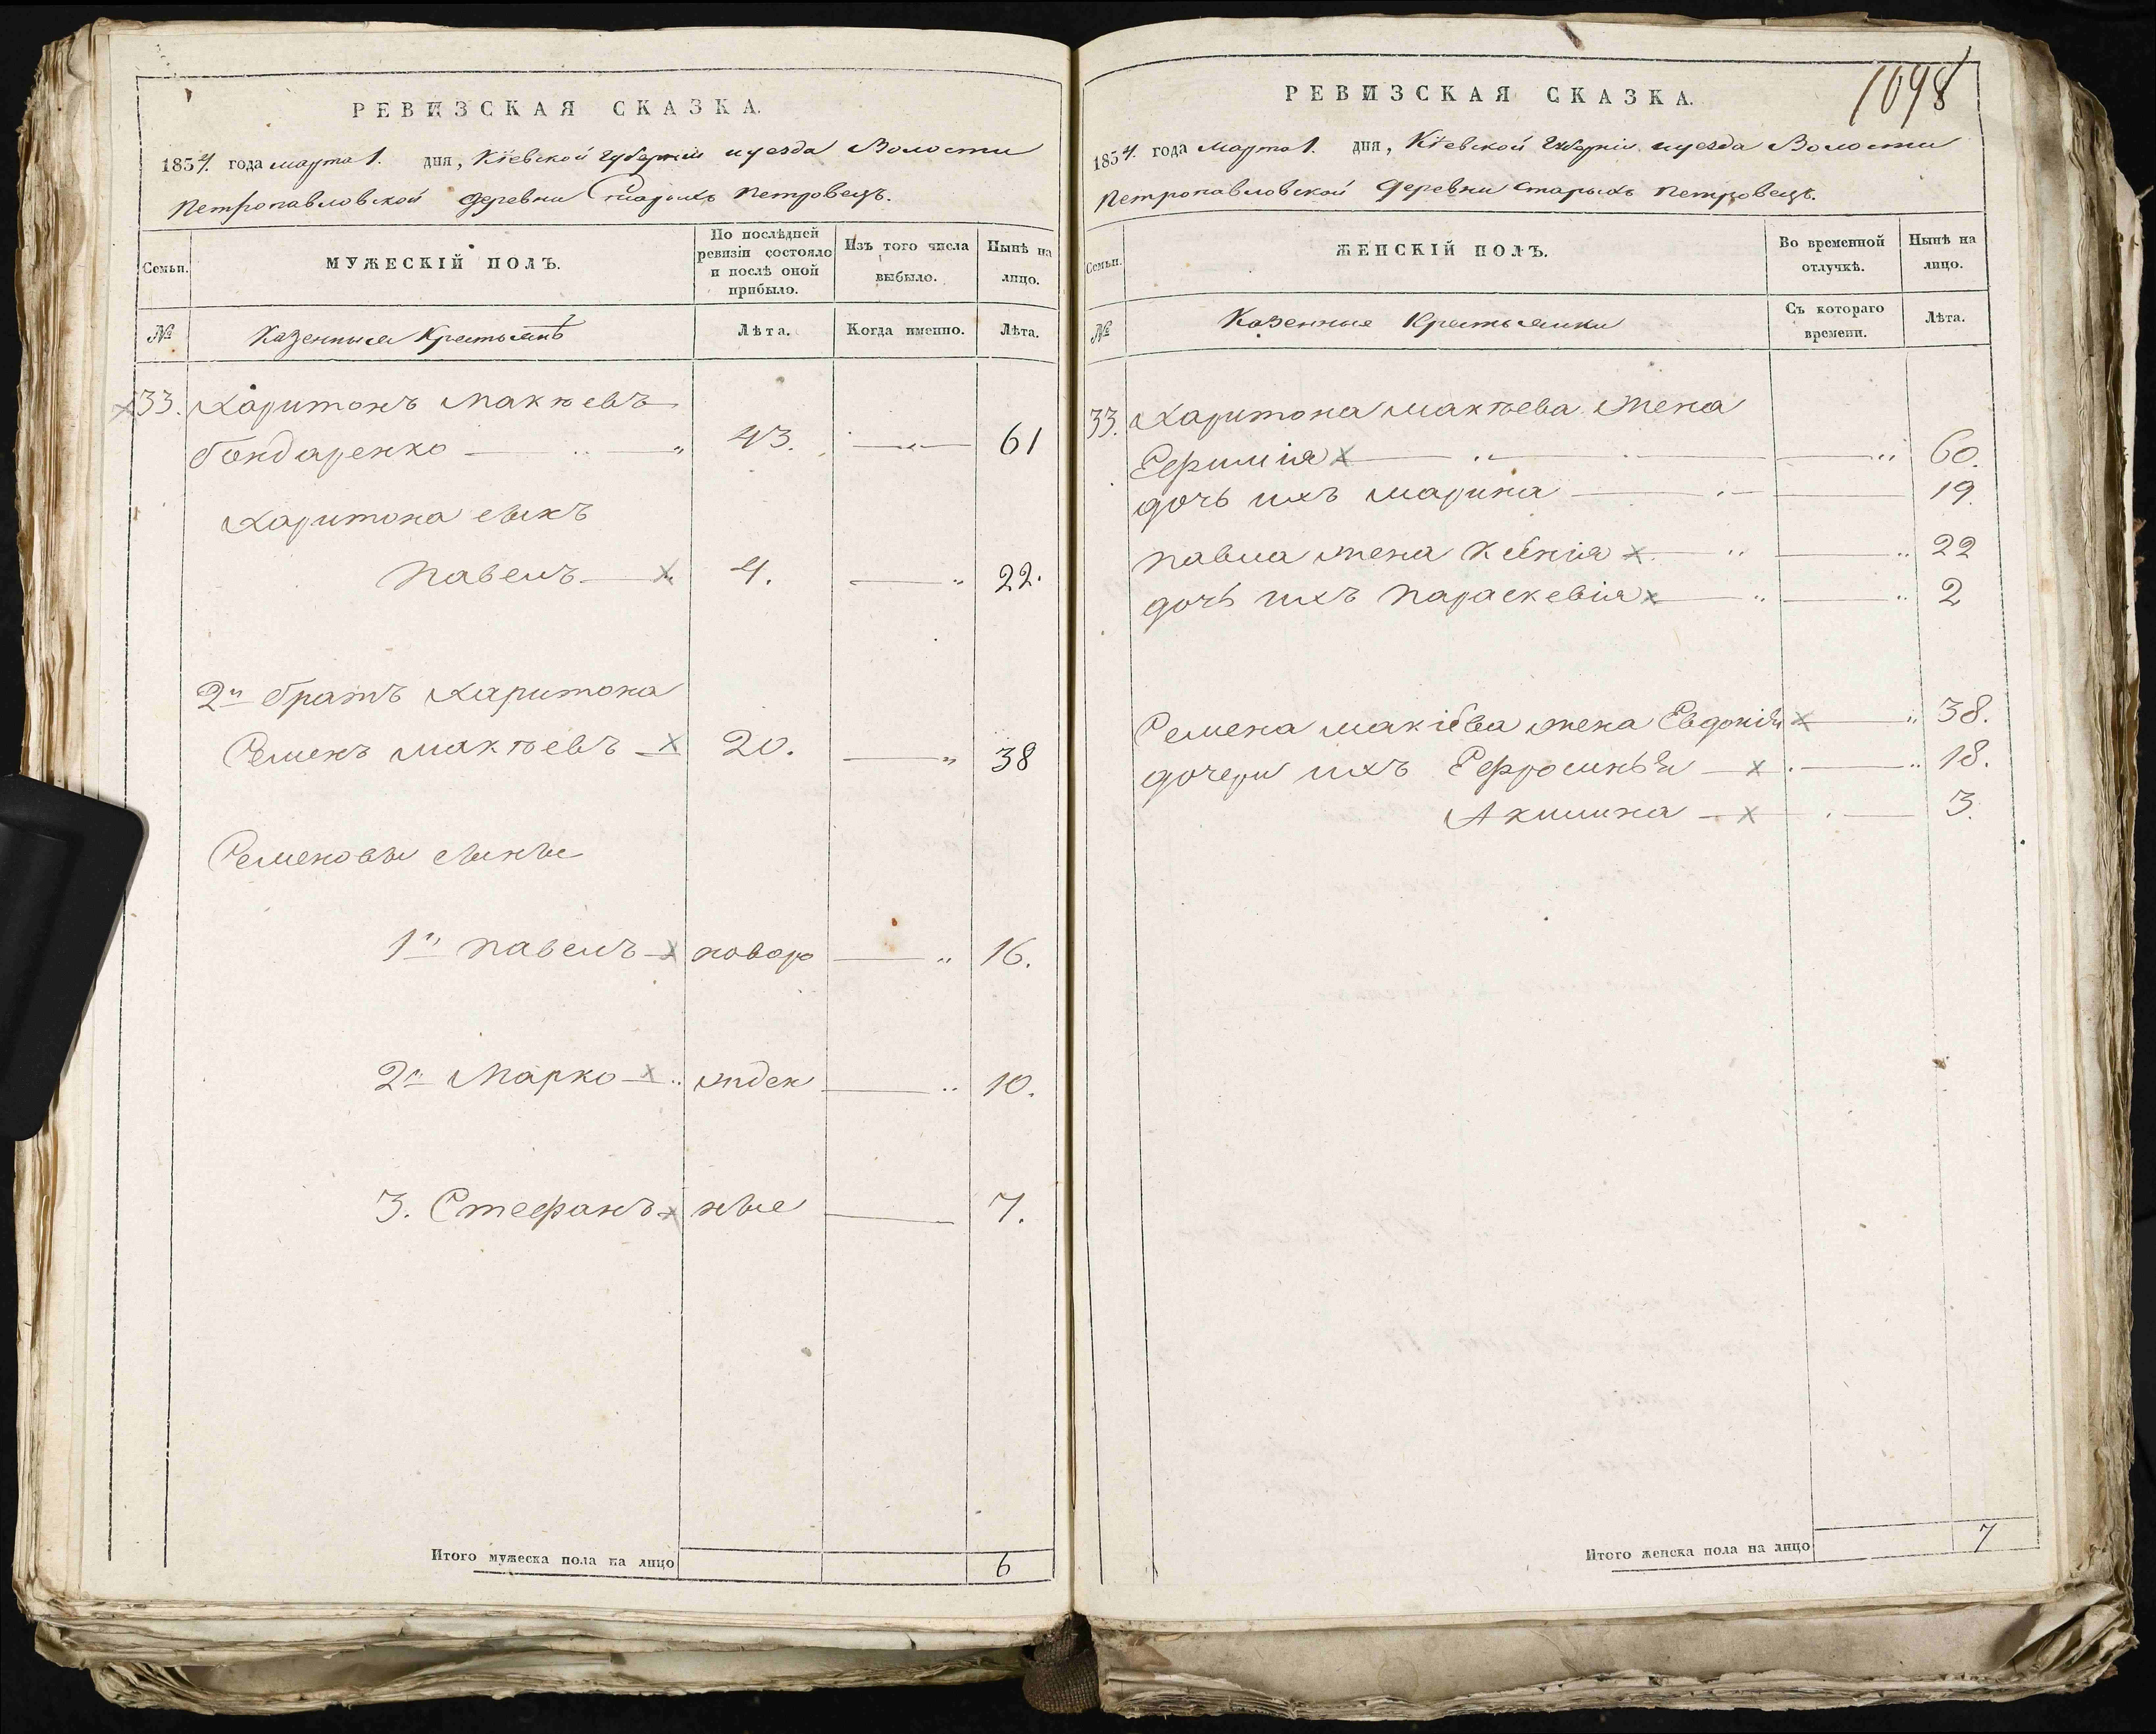 РЕВИЗСКАЯ СКАЗКА.
1854. года марта 1. дня, Кіевской губерніи и уезда Волости
Петропавловской деревни Старыхъ Петровецъ.
Семьи.
МУЖЕСКІЙ ПОЛЪ.
По послѣдней ревизіи состояло и послѣ оной прибыло.
Изъ того числа выбыло.
Нынѣ на лицо.
№
Казенныя Крестьянѣ
Лѣта.
Когда именно.
Лѣта.
33. Харитонъ Макѣевъ
Бондаренко 43. 61
Харитона сынъ
Павелъ 4. 22.
2й братъ Харитона
Семенъ Макѣевъ 20. 38
Семеновы сыны
1й Павелъ новоро 16.
2й Марко жден 10.
3. Стефанъ ные 7.
Итого мужеска пола на лицо 6
1098
РЕВИЗСКАЯ СКАЗКА.
1854. года Марта 1. дня, Кіевской Губерніи и уезда Волости
Петропавловской деревни Старыхъ Петровецъ.
Семьи.
ЖЕНСКІЙ ПОЛЪ.
Во временной отлучкѣ.
Нынѣ на лицо.
№
Казенные Крестьянки
Съ котораго времени.
Лѣта.
33. Харитона Макѣева жена
Ефимія 60.
дочь ихъ Марина 19.
Павла жена Ксѣнія 22
дочь ихъ Параскевія 2
Семена Макіева жена Евдокія 38.
дочери ихъ Ефросинья 18.
Акилина 3.
Итого женска пола на лицо 7